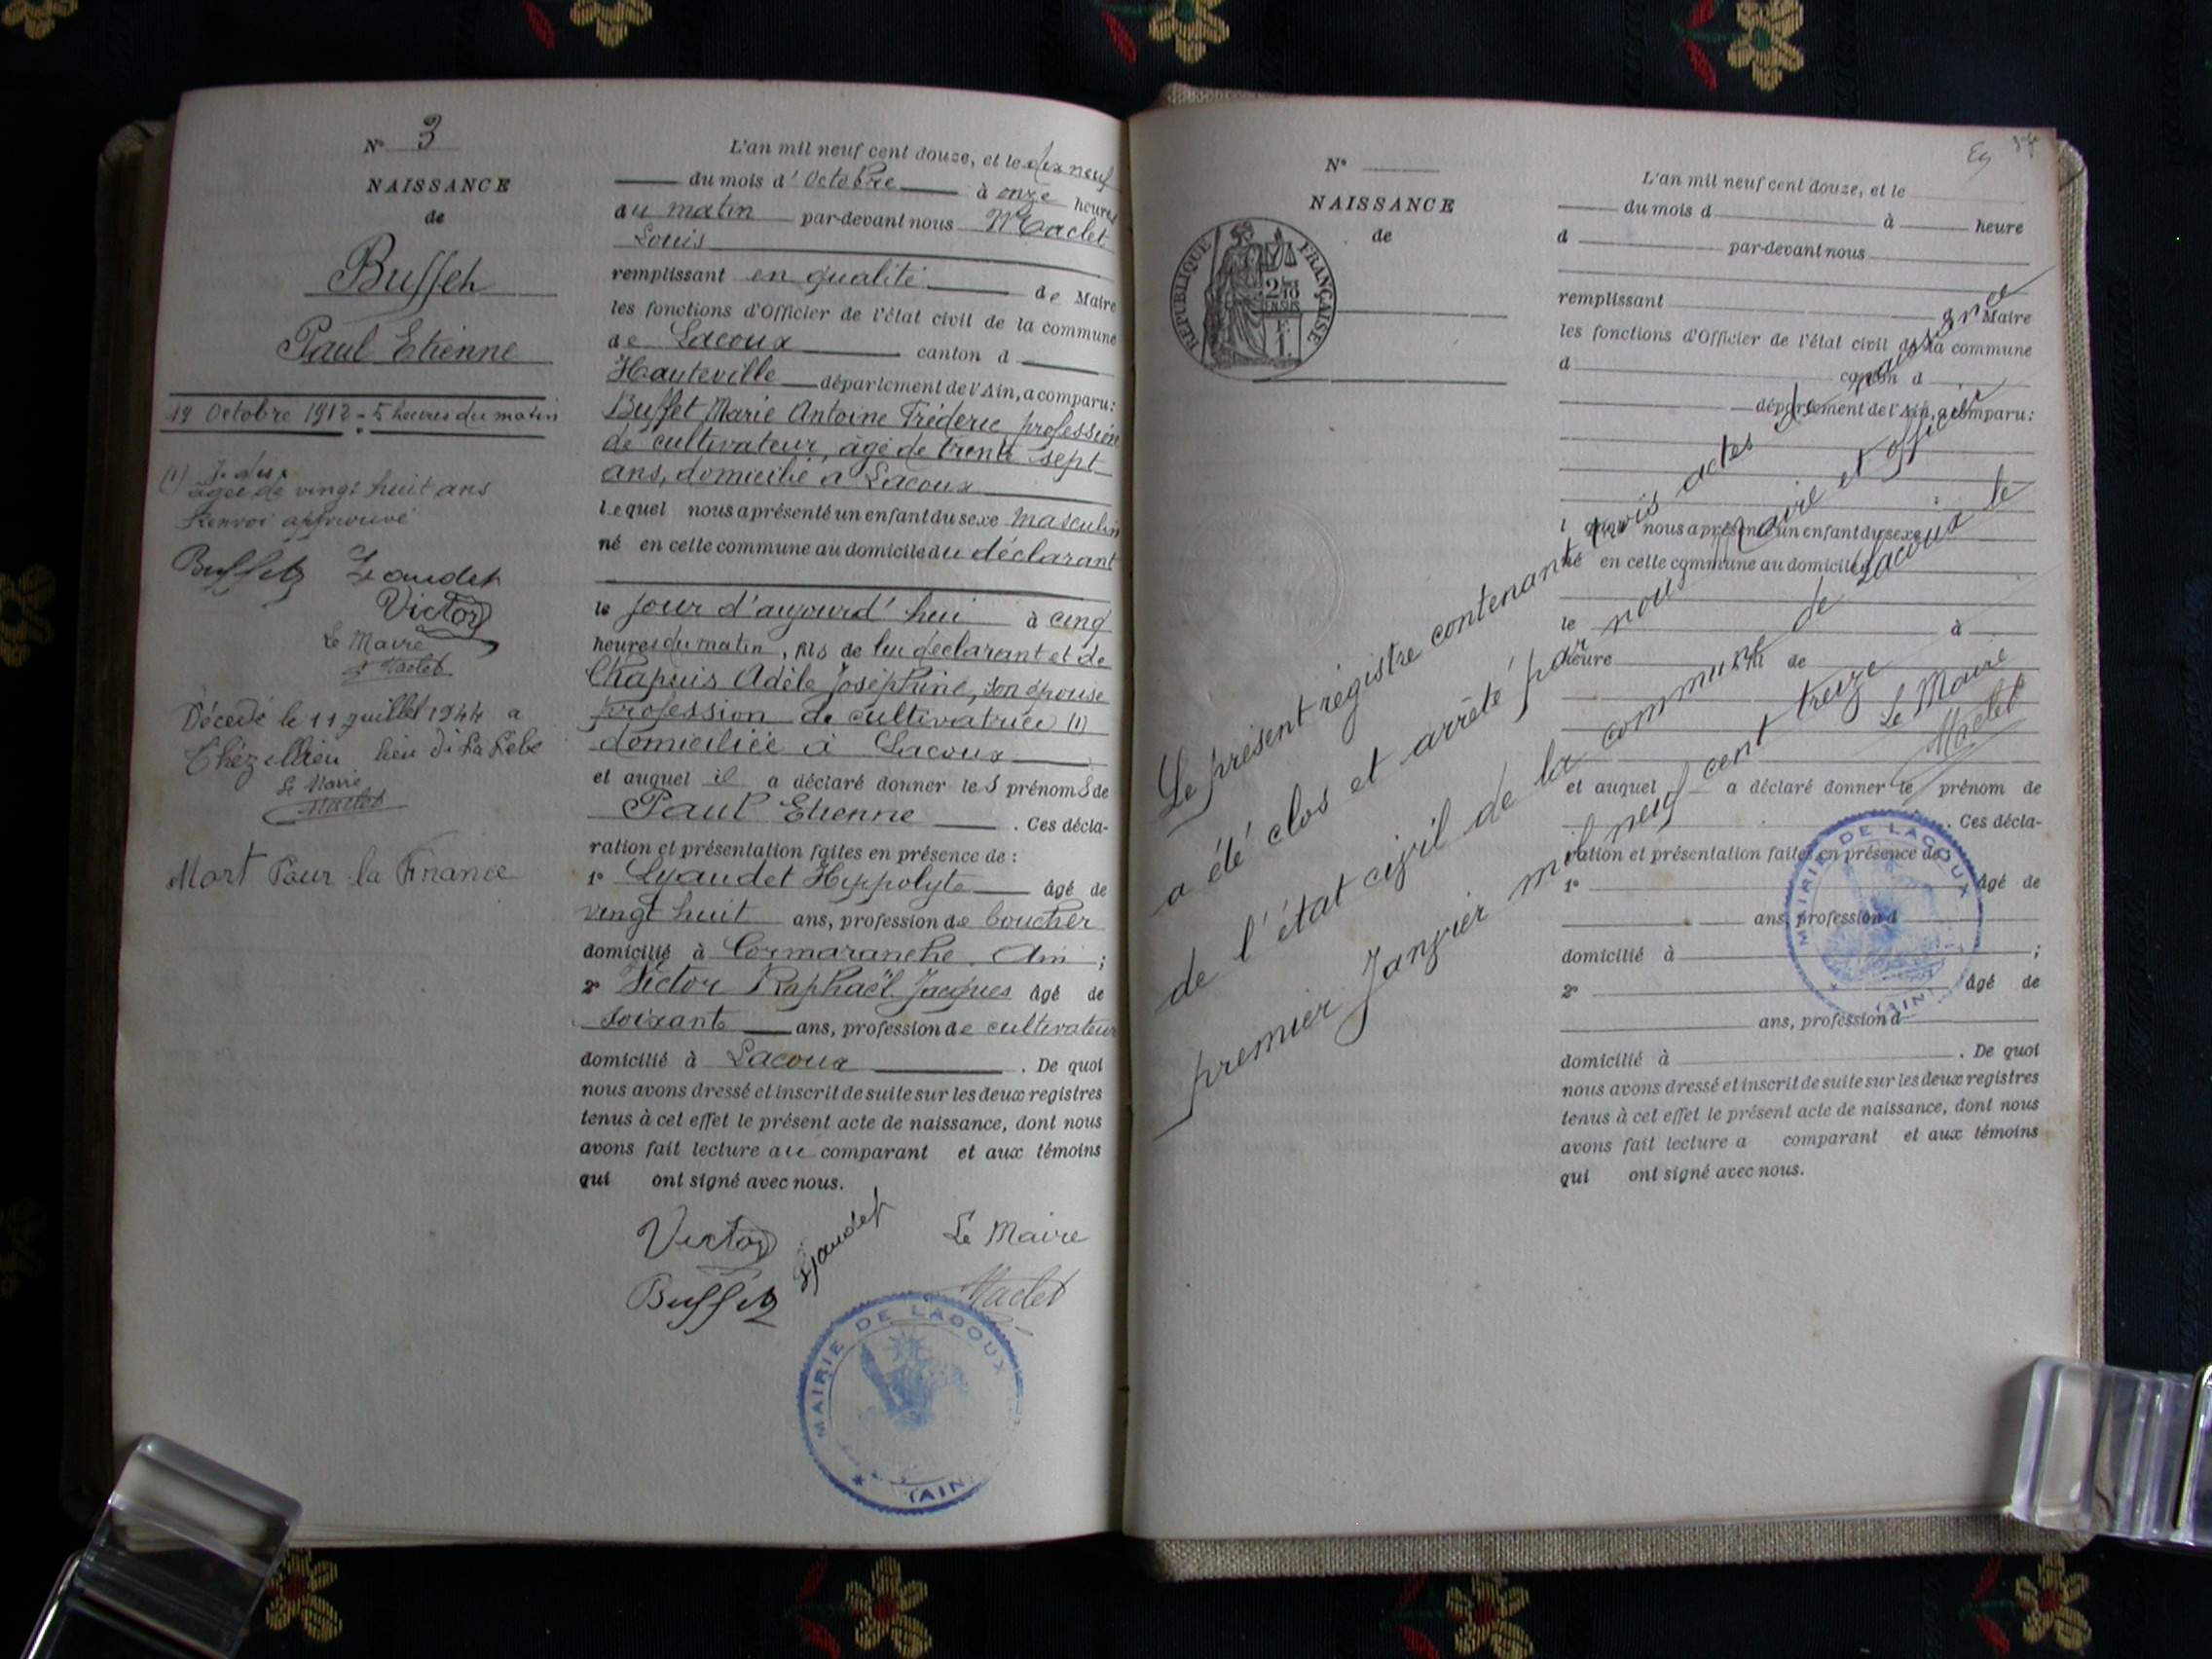 N° 3
NAISSANCE
de
Buffet
Paul Etienne
19 Octobre 1912 - 5 heures du matin
(1) Je dis
agée de vingt huit ans
Renvoi approuvé
Buffet Lyaudet
Victor
Le Maire
Maclet
Décédé le 11 juillet 1944 a
lieu di La Lebe
Le Maire
Maclet
Mort Pour la France
L'an mil neuf cent douze, et le dix neuf
du mois d'Octobre à onze heures
du matin par-devant nous Maclet
Louis
remplissant en qualité de Maire
les fonctions d'Officier de l'état civil de la commune
de Lacoux canton d
Hauteville département de l'Ain, a comparu:
Buffet Marie Antoine Fréderic, profession
de cultivateur, âgé de trente sept
ans, domicilié à Lacoux
lequel nous a présenté un enfant du sexe masculin
né en cette commune au domicile du déclarant
le jour d'aujourd'hui à cinq
heures du matin, fils de lui déclarant et de
Chapuis Adèle Joséphine, son épouse
profession de cultivatrice (1)
domiciliée à Lacoux
et auquel il a déclaré donner les prénoms de
Paul Etienne . Ces décla-
ration et présentation faites en présence de :
1° Lyaudet Hippolyte âgé de
vingt huit ans, profession de boucher
domicilié à Cormaranche . Ain ;
2° Victor Raphaël Jacques âgé de
soixante ans, profession de cultivateur
domicilié à Lacoux . De quoi
nous avons dressé et inscrit de suite sur les deux registres
tenus à cet effet le présent acte de naissance, dont nous
avons fait lecture au comparant et aux témoins
qui ont signé avec nous.
Victor Lyaudet Le Maire
Buffet Maclet
MAIRIE DE LACOUX
(AIN)
N°
NAISSANCE
de
RÉPUBLIQUE FRANÇAISE
L'an mil neuf cent douze, et le
du mois d à heure
d par-devant nous
remplissant Maire
les fonctions d'Officier de l'état civil de la commune
d canton d
département de l'Ain, a comparu:
l quel nous a présenté un enfant du sexe
né en cette commune au domicile
le à
heure fil de
et auquel a déclaré donner le prénom de
. Ces décla-
ration et présentation faites en présence de
1° âgé de
ans, profession d
domicilié à ;
2° âgé de
ans, profession d
domicilié à . De quoi
nous avons dressé et inscrit de suite sur les deux registres
tenus à cet effet le présent acte de naissance, dont nous
avons fait lecture a comparant et aux témoins
qui ont signé avec nous.
Le présent régistre contenant trois actes de naissance
a été clos et arrêté par nous Maire et officier
de l'état civil de la commune de Lacoux le
premier Janvier mil neuf cent treize
Le Maire
Maclet
MAIRIE DE LACOUX
(AIN)